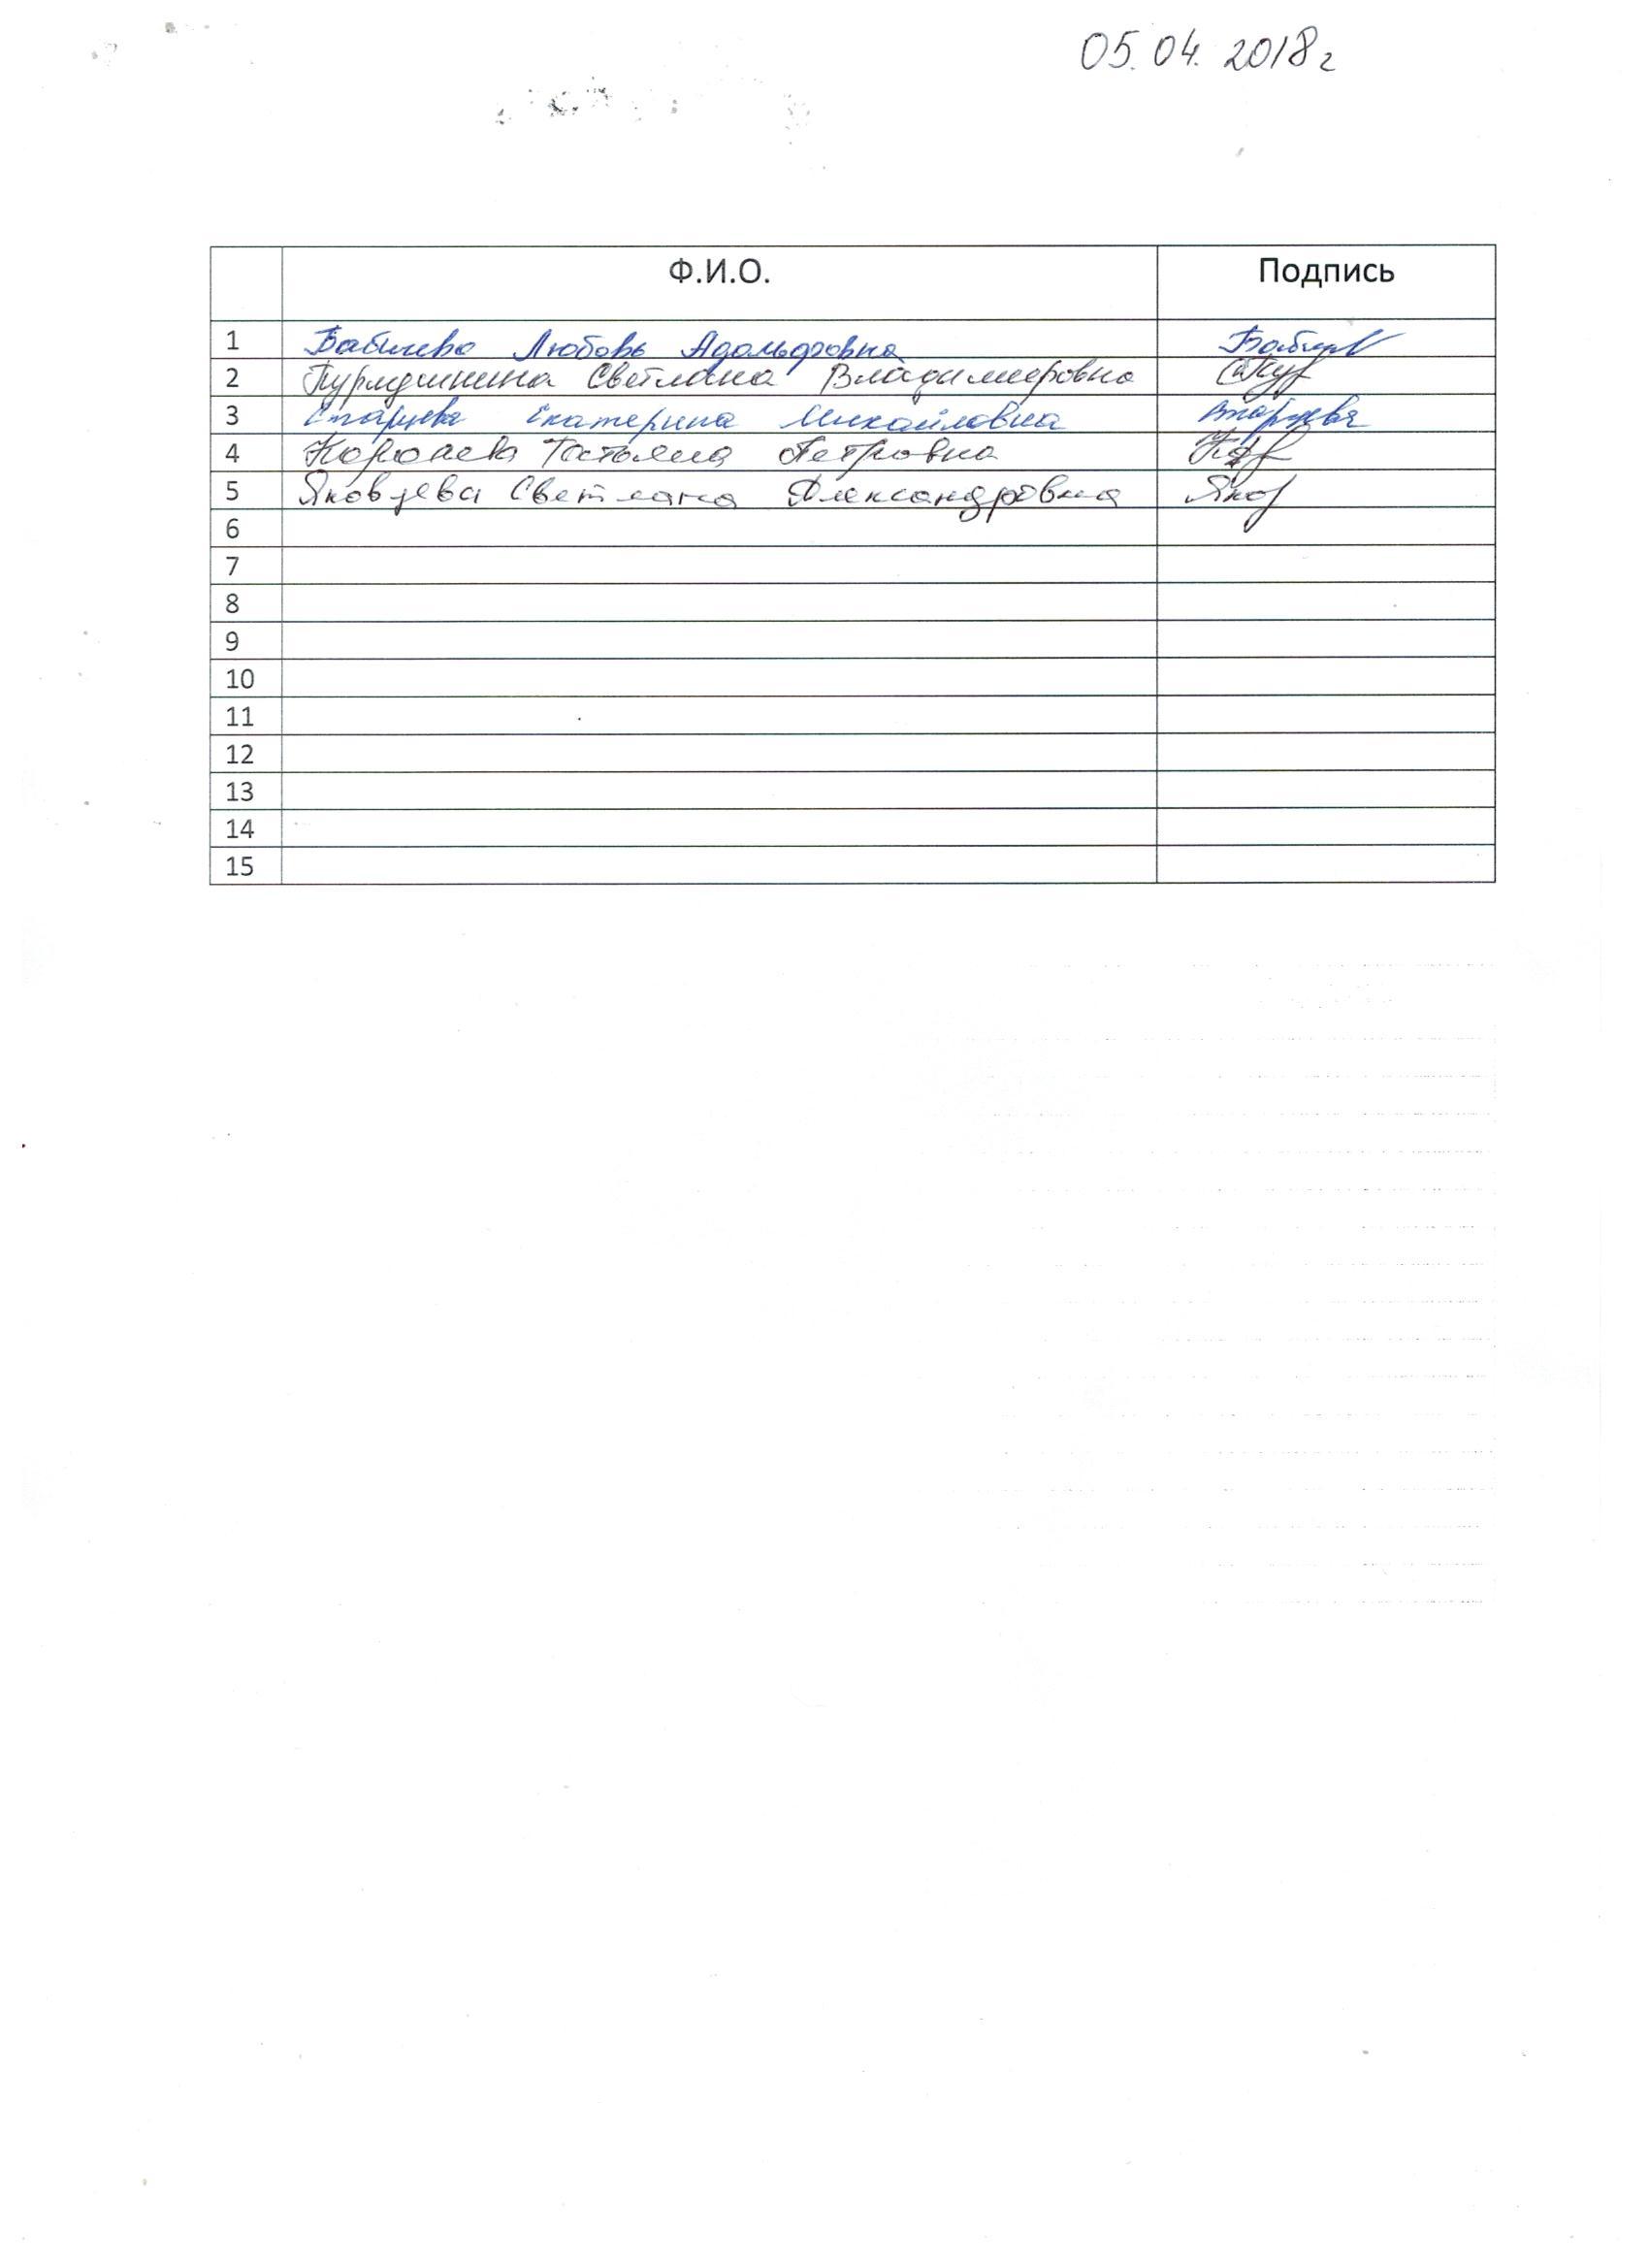 05.04.2018г
Ф.И.О. Подпись
1 Бабичева Любовь Адольфовна
2 Светлана Владимировна
3 Старцева Екатерина Михайловна Старцева
4 Татьяна Петровна
5 Яковцева Светлана Александровна Яко
6
7
8
9
10
11
12
13
14
15